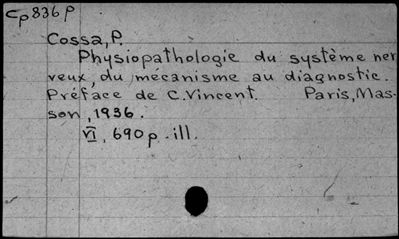 Cp836p
Cossa, P.
Physiopathologie du système ner
veux, du mécanisme au diagnostic.
Préface de C. Vincent. Paris, Mas-
son, 1936.
VI, 690p. ill.